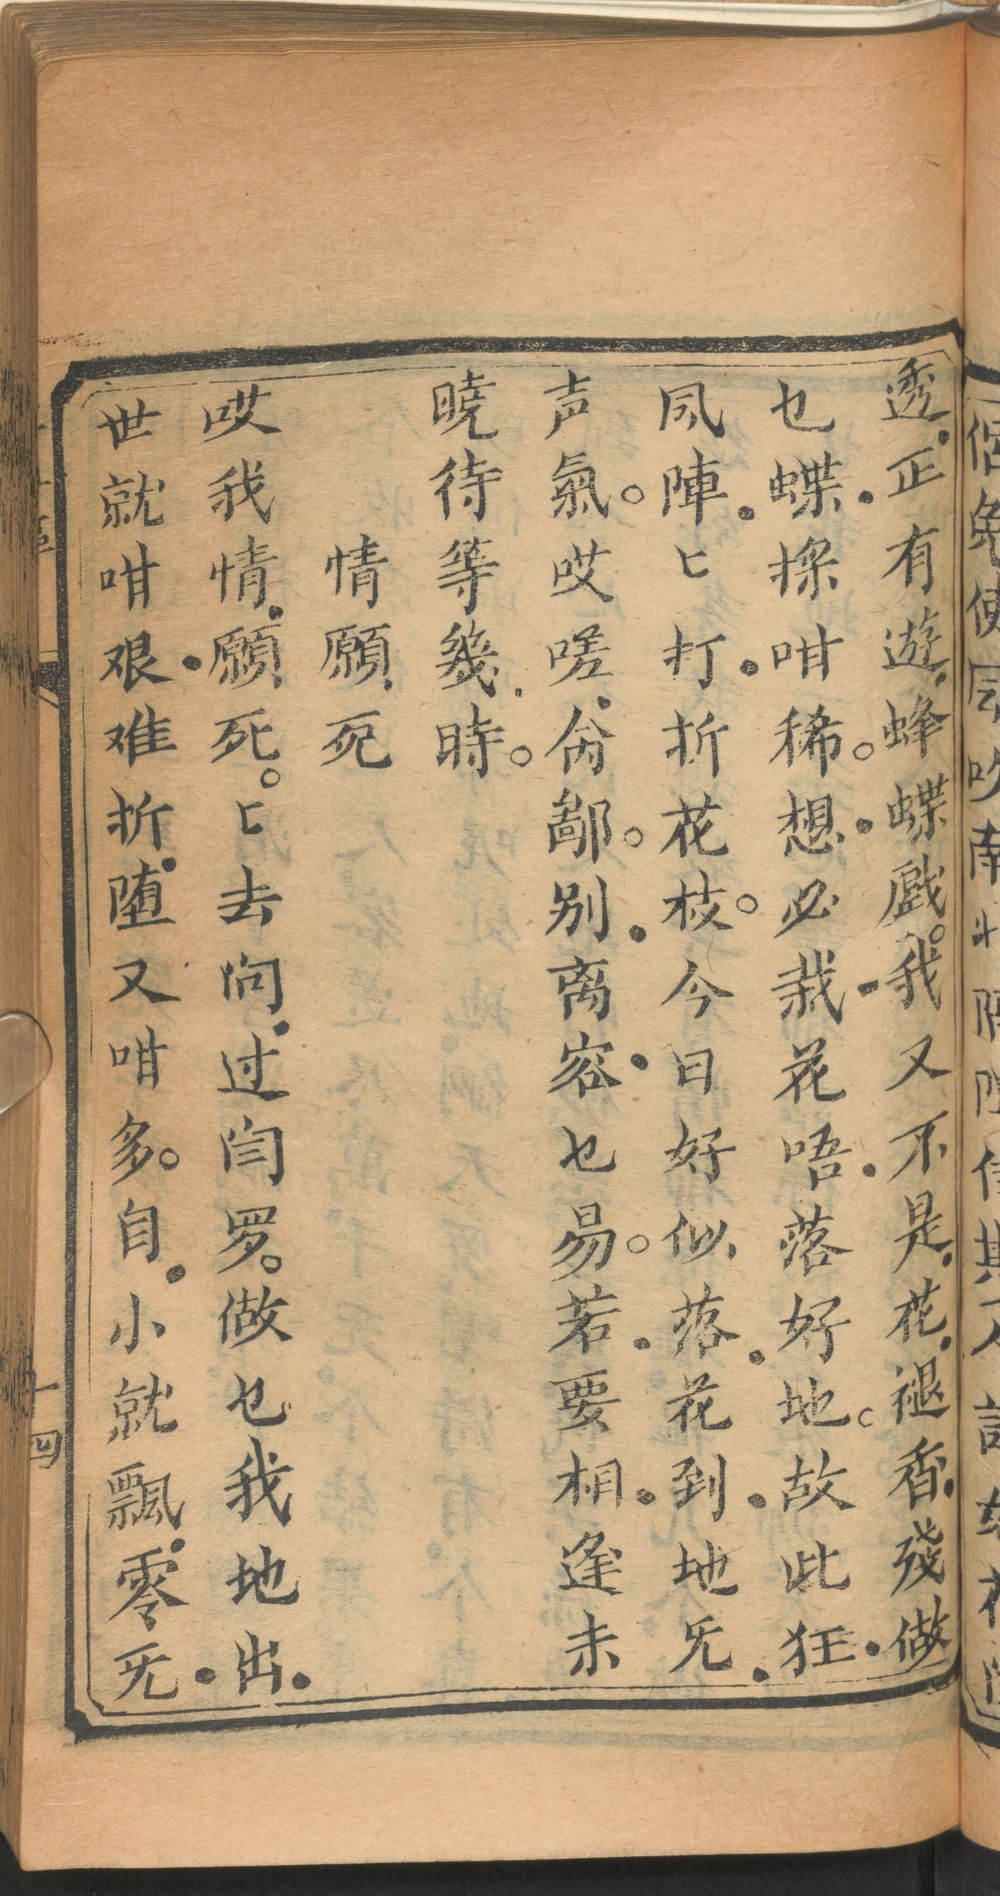 透正有遊蜂蝶戲我又不是花褪香殘做
乜蝶採咁稀想必栽花唔落好地故此狂
凨陣匕打折花枝今日好似落花到地旡
声氣哎嗟。鄙别离容乜易若要相逢未
曉待等幾時
情願死
哎我情願死匕去问过闫罗做乜我地出
世就咁艰难折堕又咁多自小就飄零旡
十四